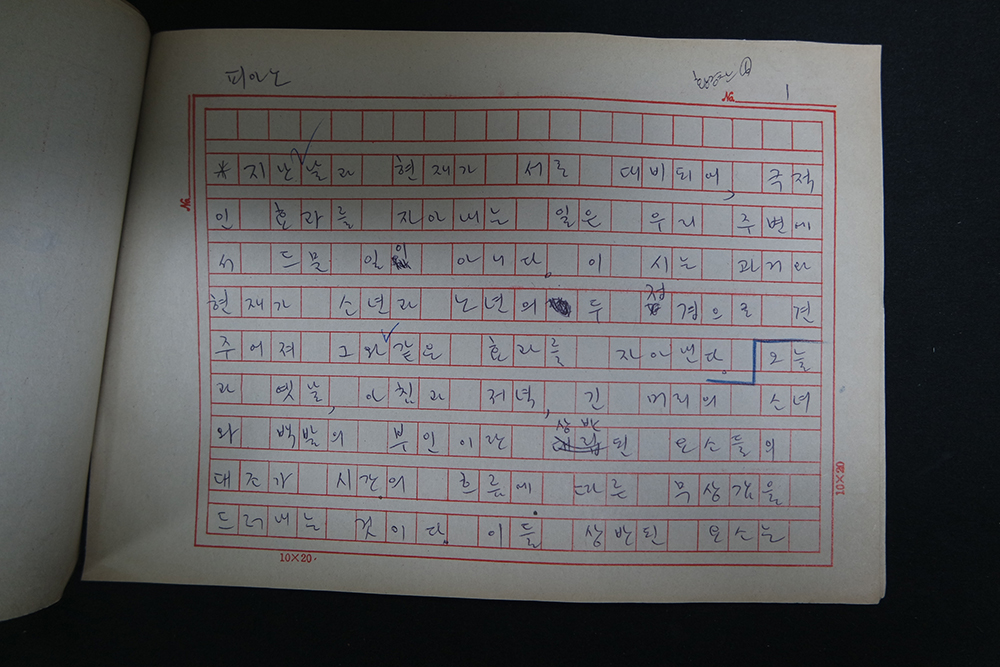 피아노
①
No. 1
No.
* 지난날과 현재가 서로 대비되어, 극적
인 효과를 자아내는 일은 우리 주변에
서 드물 일이 아니다. 이 시는 과거와
현재가 소년과 노년의 두 정경으로 견
주어져 그와같은 효과를 자아낸다. 오늘
과 옛날, 아침과 저녁, 긴 머리의 소녀
와 백발의 부인이란 상반된 요소들의
대조가 시간의 흐름에 따른 무상감을
드러내는 것이다. 이들 상반된 요소는
10×20
10×20